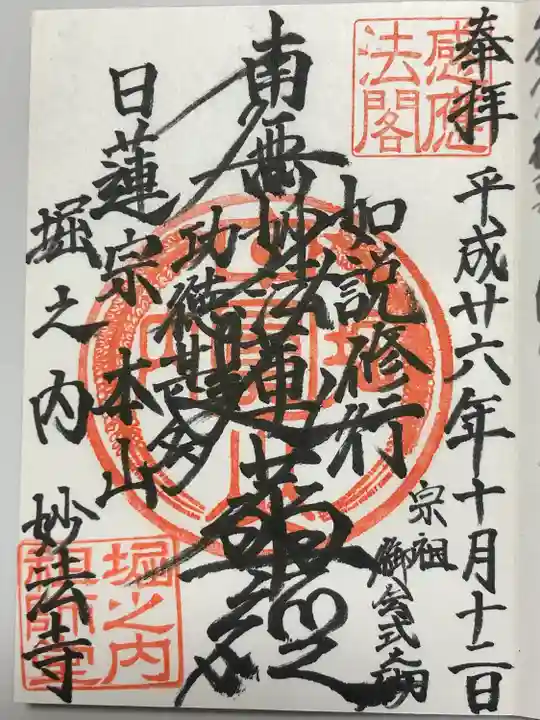 奉拝
平成廿六年十月十二日
宗祖
御会式
感應
法閣
如説修行
南無妙法蓮華経
功徳甚多
日蓮宗 本山
堀之内 妙法寺
堀之内
祖師堂